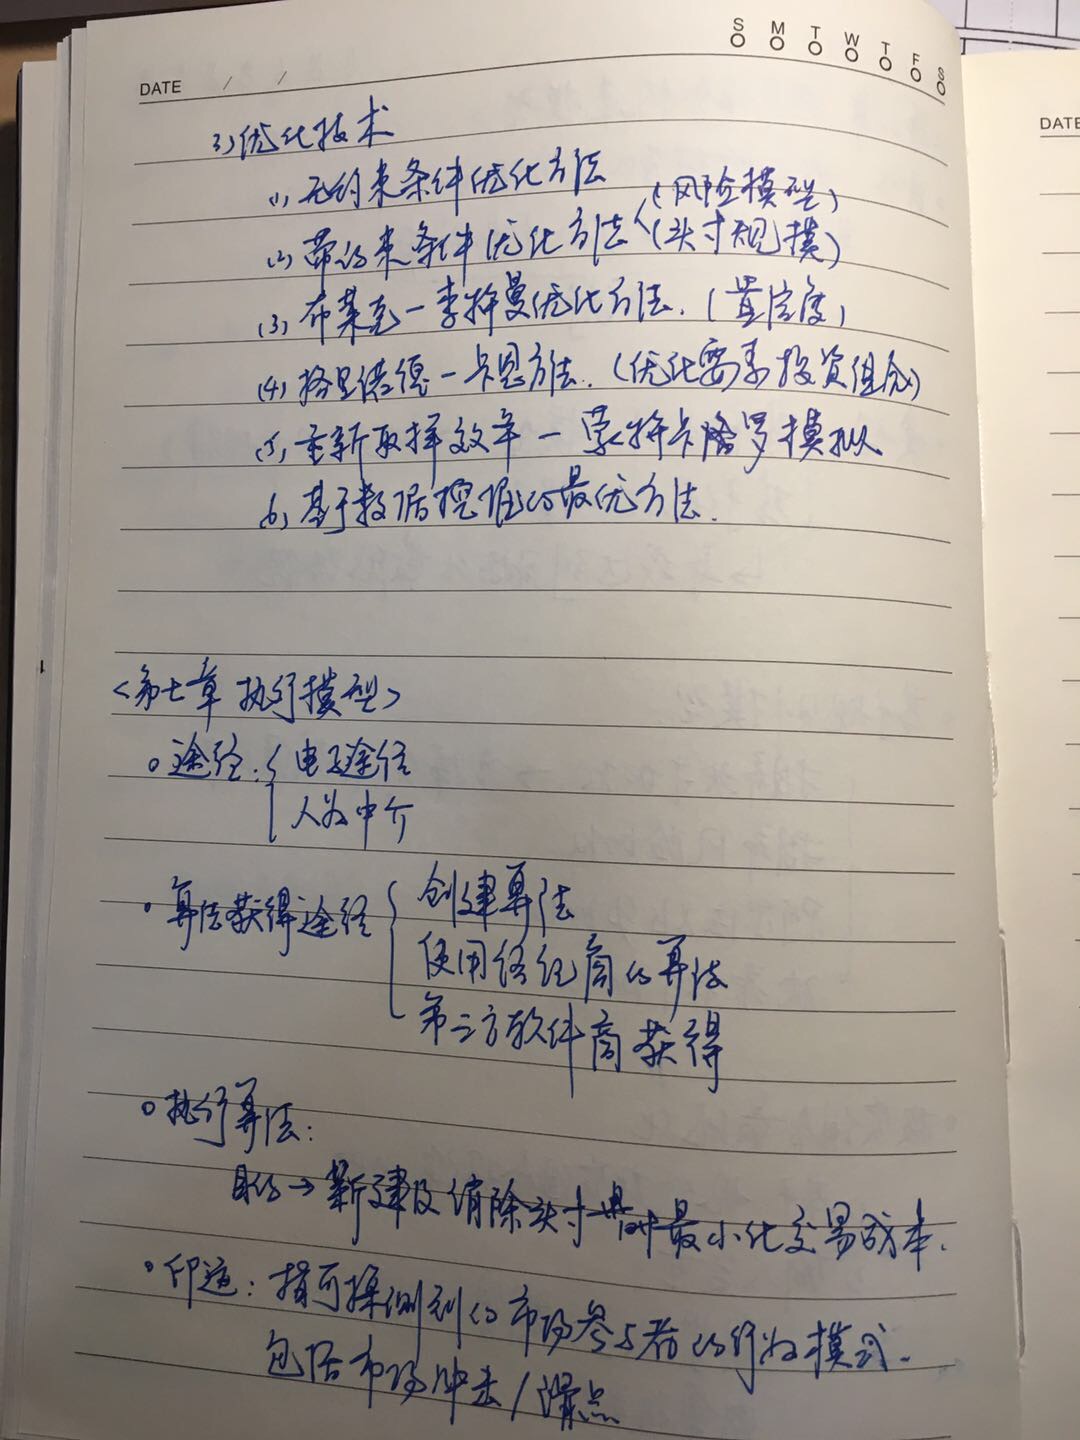 S M T W T F S
DATE / /
DATE
3)优化技术
(1)无约束条件优化方法
(2)带约束条件优化方法<(风险模型)
(头寸规模)
(3)布莱克一李特曼优化方法.(置信度)
(4)格里诺德一卡恩方法.(优化要素投资组合)
(5)重新取样效率一蒙特卡洛罗模拟
6)基于数据挖掘的最优方法.
<第七章 执行模型>
途径:{电子途径
人为中介
算法获得途径{创建算法
使用经纪商的算法
第三方软件商获得
执行算法:
目的→新建及消除头寸 时最小化交易成本.
印迹:指可探测到的市场参与者的行为模式.
包括市场冲击/爆点